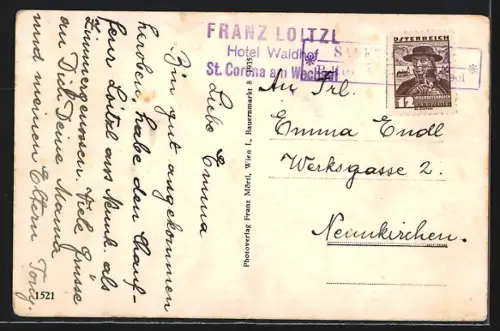 FRANZ LOITZL
Hotel Waldhof
St. Corona am Wechsel
ÖSTERREICH
12
GROSCHEN
Liebe Emma
Bin gut angekommen
heroben, habe den Chauf-
feur Loitzl aus Neunk. als
Zimmergenossen. Viele Grüsse
an Dich Deine Mama
und meinen Eltern Tony.
1521
Photoverlag Franz Mörtl, Wien I., Bauernmarkt 8 1935
An Frl.
Emma Endl
Werksgasse 2.
Neunkirchen.